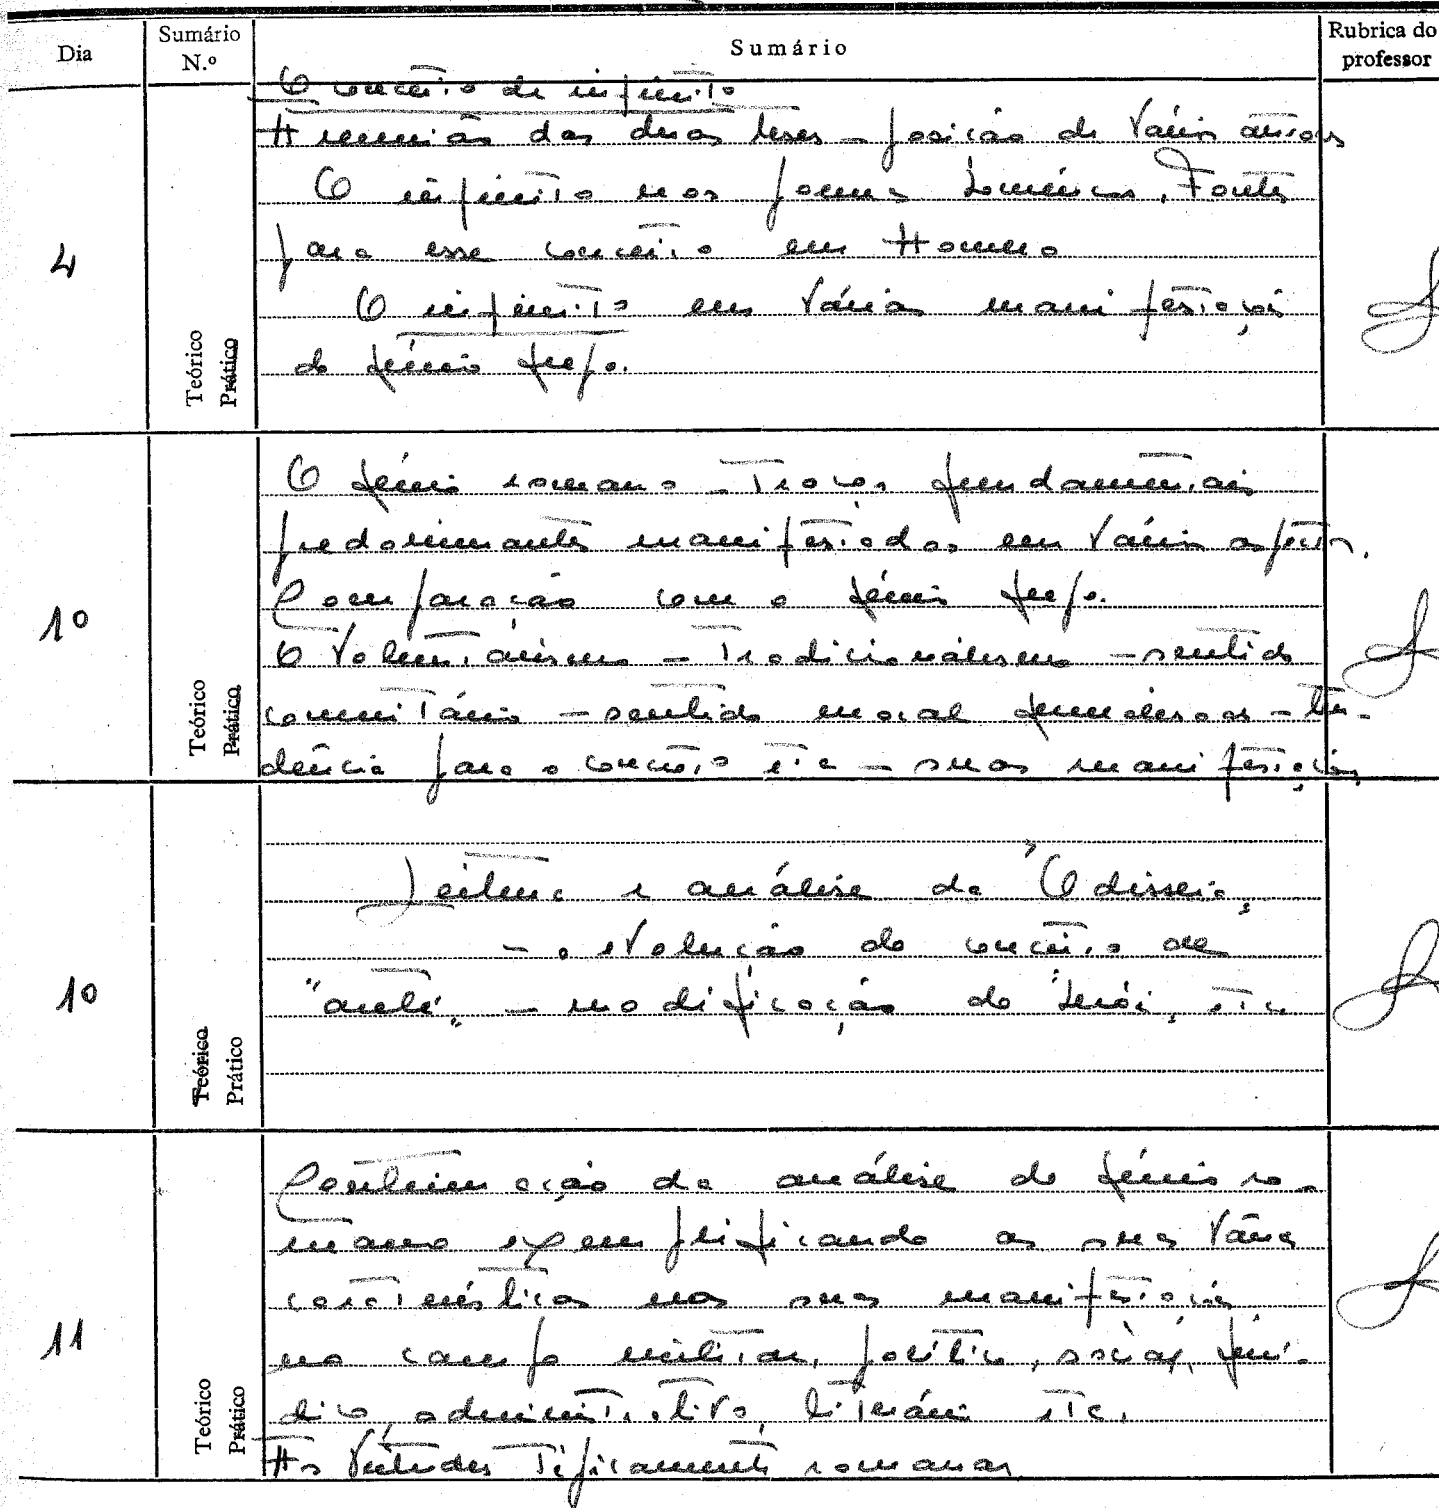 Dia
Sumário N.º
Sumário
Rubrica do professor
4
Teórico
Prático
O conceito de infinito
A reunião das duas teses - posição de vários autores
O infinito nos poemas homéricos. Fontes
para esse conceito em Homero
O infinito em várias manifestações
do génio grego.
10
Teórico
Prático
O génio romano - Traços fundamentais
predominantes manifestados em vários aspectos.
Comparação com o génio grego.
O voluntarismo - Tradicionalismo - sentido
comunitário - sentido moral - ten-
dência para o concreto etc - suas manifestações
10
Teórico
Prático
Leitura e análise da "Odisseia"
- a evolução do conceito de
"aretê" - modificação do herói, etc
11
Teórico
Prático
Continuação da análise do génio ro-
mano exemplificando as suas várias
características nas suas manifestações
no campo militar, político, social, jurí-
dico, administrativo, literário etc.
As virtudes tipicamente romanas